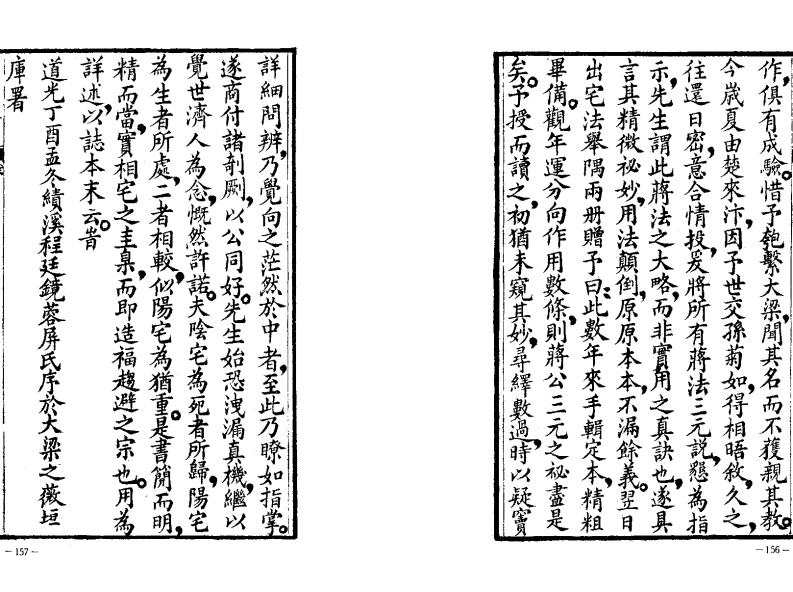 作，俱有成驗。惜予匏繫大梁，聞其名而不獲親其教。
今歲夏由楚來汴，因予世交孫菊如，得相晤敘，久之，
往還日密，意合情投，爰將所有蔣法三元說，懇為指
示，先生謂此蔣法之大略，而非實用之真訣也，遂具
言其精微祕妙，用法顛倒，原原本本，不漏餘義。翌日
出宅法舉隅兩册贈予曰：此數年來手輯定本，精粗
畢備。觀年運分向作用數條，則蔣公三元之祕盡是
矣。予授而讀之，初猶未窺其妙，尋繹數過，時以疑竇
－156－
詳細問辨，乃覺向之茫然於中者，至此乃瞭如指掌。
遂商付諸剞劂，以公同好。先生始恐洩漏真機，繼以
覺世濟人為念，慨然許諾。夫陰宅為死者所歸，陽宅
為生者所處，二者相較，似陽宅為猶重。是書簡而明，
精而當，實相宅之圭臬，而即造福趨避之宗也。用為
詳述，以誌本末云。旹
道光丁酉孟冬績溪程廷鏡蓉屏氏序於大梁之薇垣
庫署
－157－